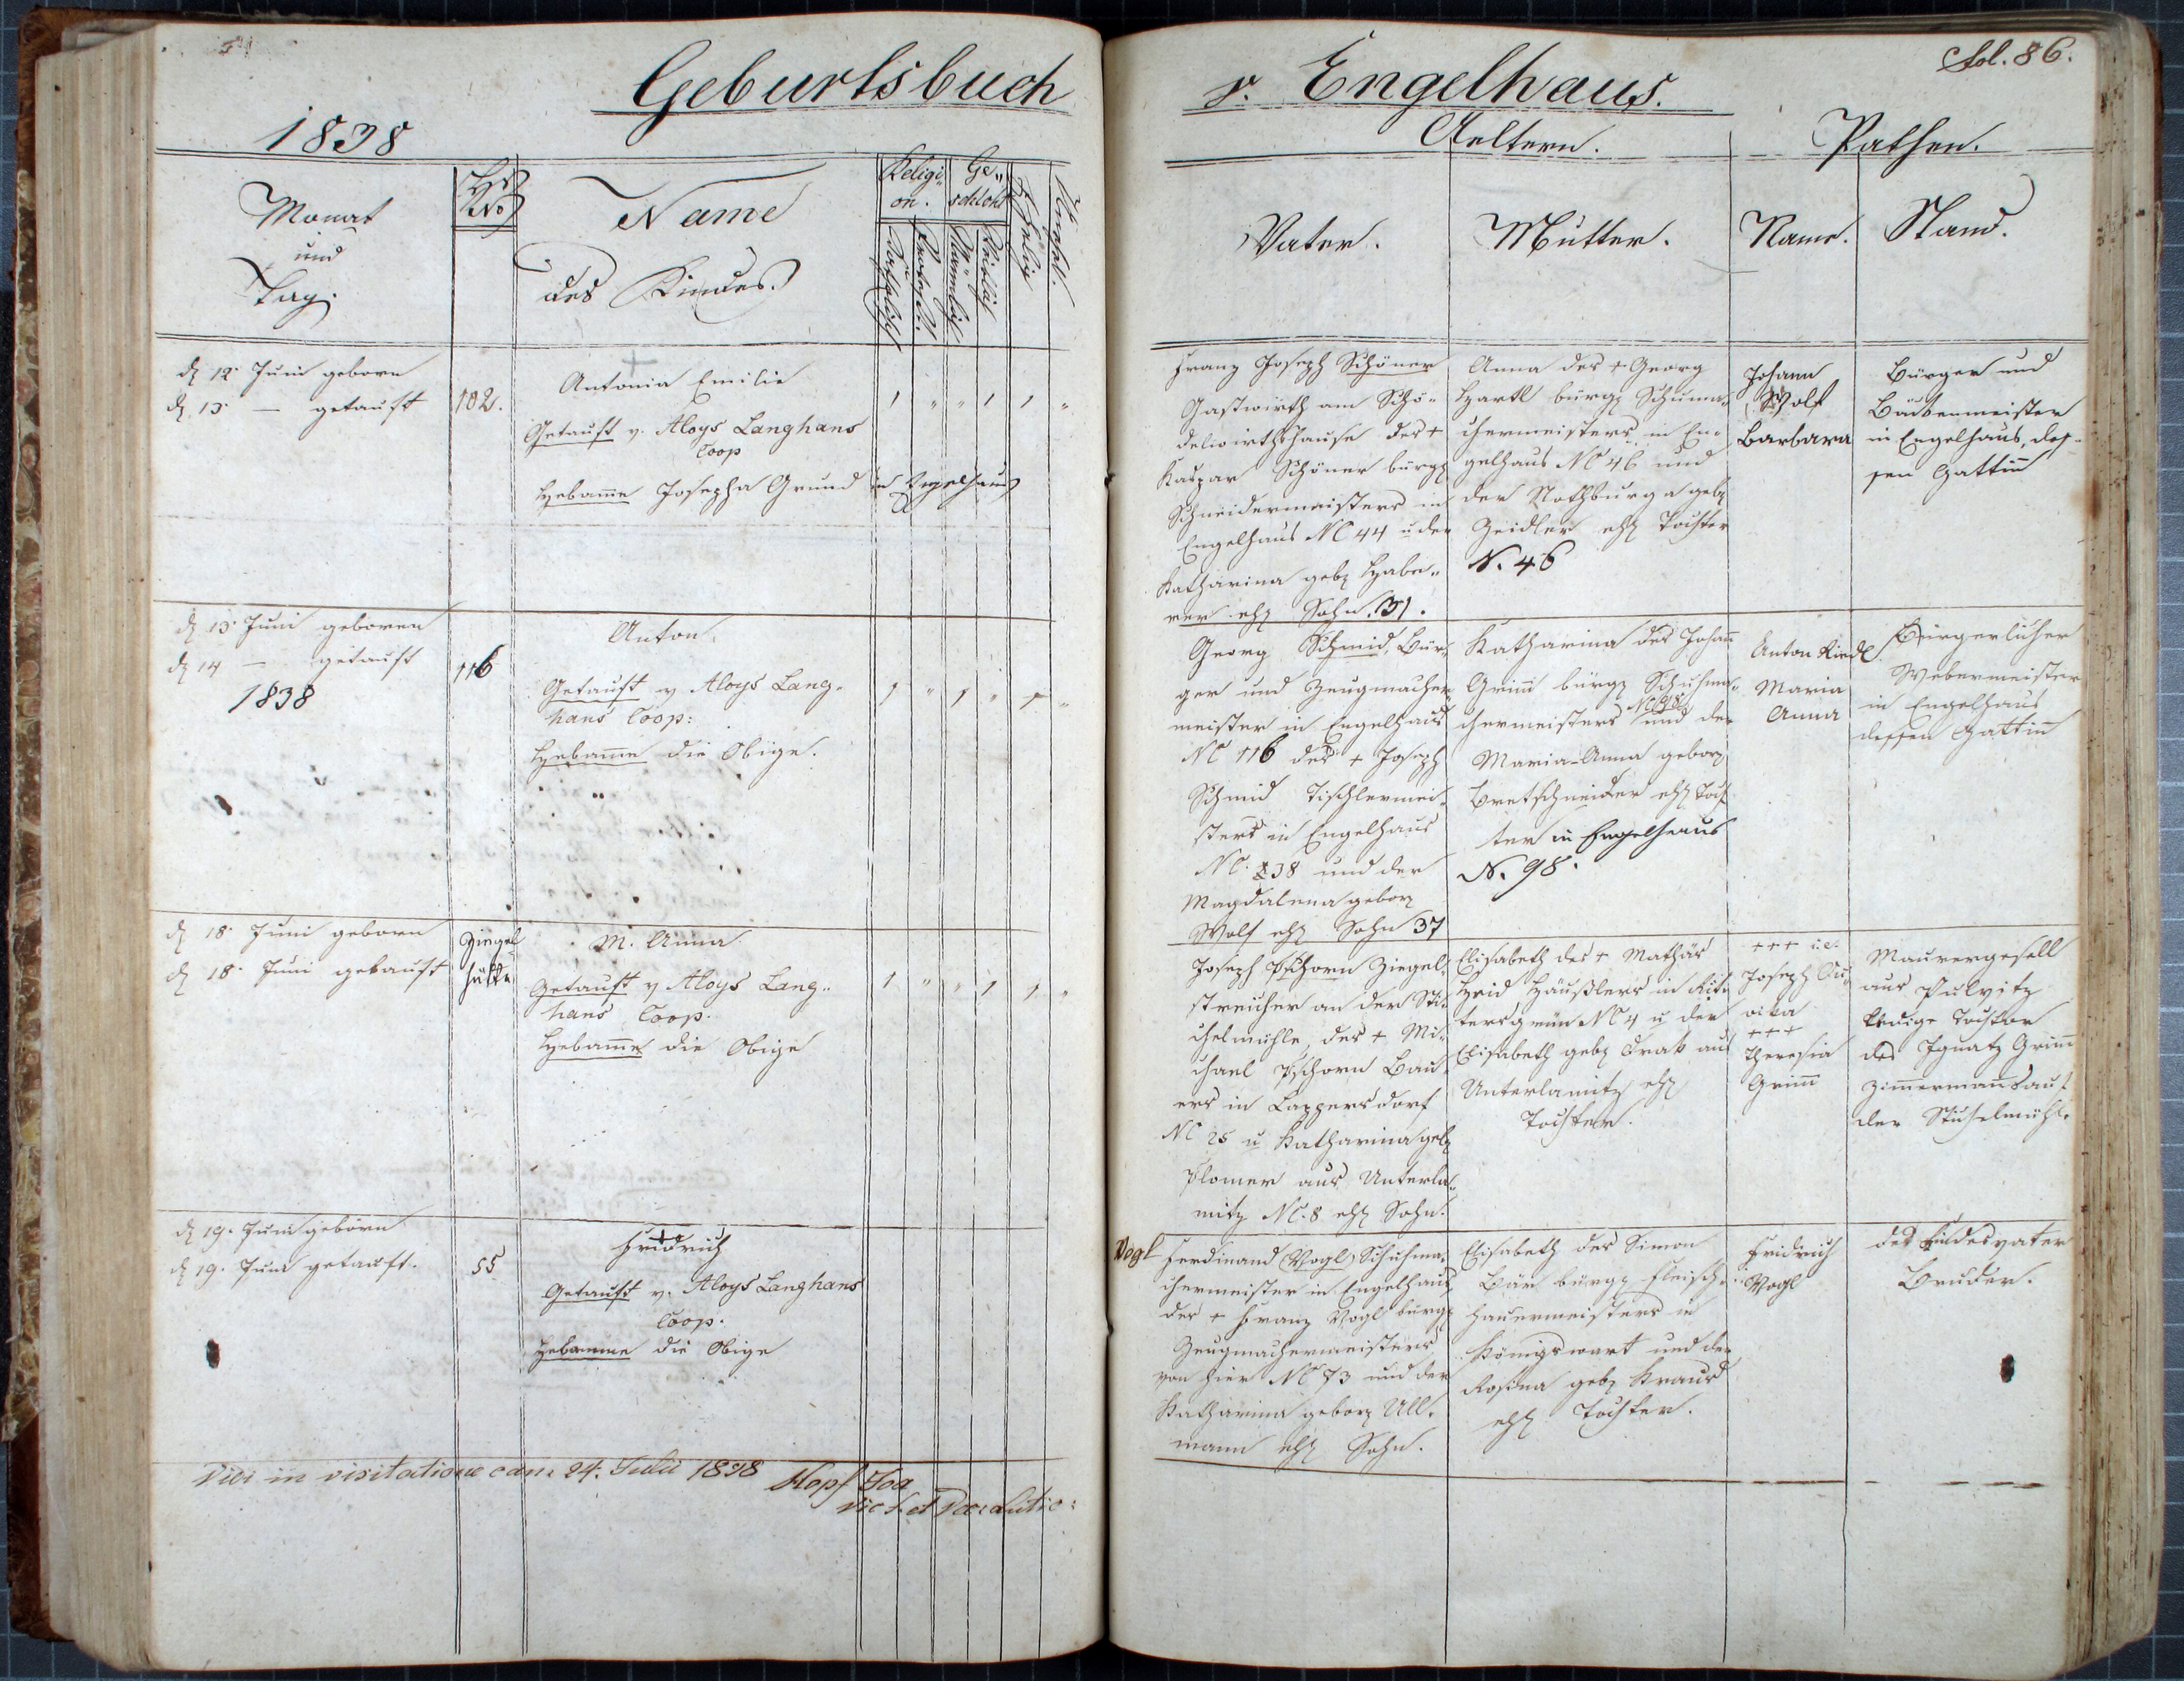 Geburtsbuch
v. Engelhaus.
Fol. 86.
1838
Monat
und
Tag.
Hs
No
Name
des Kindes.
Religi„
on.
Ge„
schlecht
Katholisch
Protest.
Männlich
Weiblich
Ehelig
Unehel.
Aeltern.
Vater.
Mutter.
Pathen.
Name.
Stand.
d 12. Juni geboren
d. 13. — getauft
102.
Antonia Emilie
Getauft v. Aloys Langhans
Coop
Hebamme Josepha Grund in Engelhaus
1 „ „ 1 1 „
Franz Joseph Schöner
Gastwirth am Schö„
delwirthshause des +
Kaspar Schöner bürg
Schneidermeisters in
Engelhaus NC 44 u der
Katharina geb Habe„
rer ehl Sohn. 31.
Anna des + Georg
Hartl bürg Schuma„
chermeisters in En„
gelhaus NC 46 und
der Nothburga geb
Zeidler ehl Tochter
N. 46
Johann
Wolf
Barbara
Bürger und
Bäckermeister
in Engelhaus, des„
sen Gattin
d 13. Juni geboren
d 14 — getauft
1838
116
Anton.
Getauft v Aloys Lang„
hans Coop:
Hebamme die Obige.
1 „ 1 „ 1 „
Georg Schmid, Bür„
ger und Zeugmacher
meister in Engelhaus
NC 116 des + Joseph
Schmid Tischlermei„
sters in Engelhaus
NC. 38 und der
Magdalena gebor
Wolf ehl Sohn 37
Katharina des Johann
Grimm bürg Schuhma„
chermeisters NC 98 und der
Maria Anna gebor
Bretschneider ehl Toch
ter in Engelhaus
N. 98.
Anton Riedl
Maria
Anna
Bürgerlicher
Webermeister
in Engelhaus
dessen Gattin
d 18. Juni geboren
d 18. Juni getauft
Ziegel
hütte
M. Anna
Getauft v Aloys Lang„
hans Coop.
Hebamme die Obige
1 „ „ 1 1 „
Joseph Pschorn Ziegel„
streicher an der Sti„
chelmühle, des + Mi„
chael Pschorn Bau„
ers in Lappersdorf
NC 25 u Katharina geb
Plomer aus Unterla„
mitz NC. 8 ehl Sohn.
Elisabeth des + Mathäs
Heid Häußlers in Rit„
tersgrün NC 4 u der
Elisabeth geb Drak aus
Unterlamitz ehl
Tochter.
+++ i.e.
Joseph Lu„
vika
+++
Theresia
Grimm
Maurergesell
aus Pulvitz
ledige Tochter
des Ignatz Grimm
Zimmermanns auf
der Stichelmühle
d 19. Juni geboren
d 19. Juni getauft.
55
Fridrich
Getauft v. Aloys Langhans
Coop.
Hebamme die Obige
Vogl
Ferdinand (Vogl) Schuhma„
chermeister in Engelhaus,
des + Franz Vogl bürg
Zeugmachermeisters
von hier NC 73 und der
Katharina gebor Ull„
mann ehl Sohn.
Elisabeth des Simon
Bär bürg Fleisch„
hauermeisters in
Königswart und der
Rosina geb Kraus
ehl Tochter.
Fridrich
Vogl
des Kindesvater
Bruder.
Vidi in visitatione can: 24. Julii 1838
Kopf